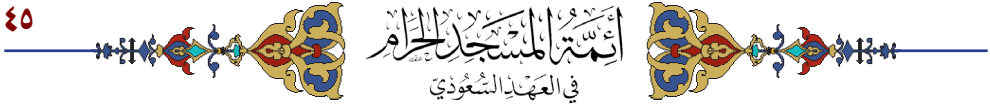 ٤٥
أَئِمَّةُ المَسْجِدِ الحَرَامِ
في العَهْدِ السُّعُودِيّ